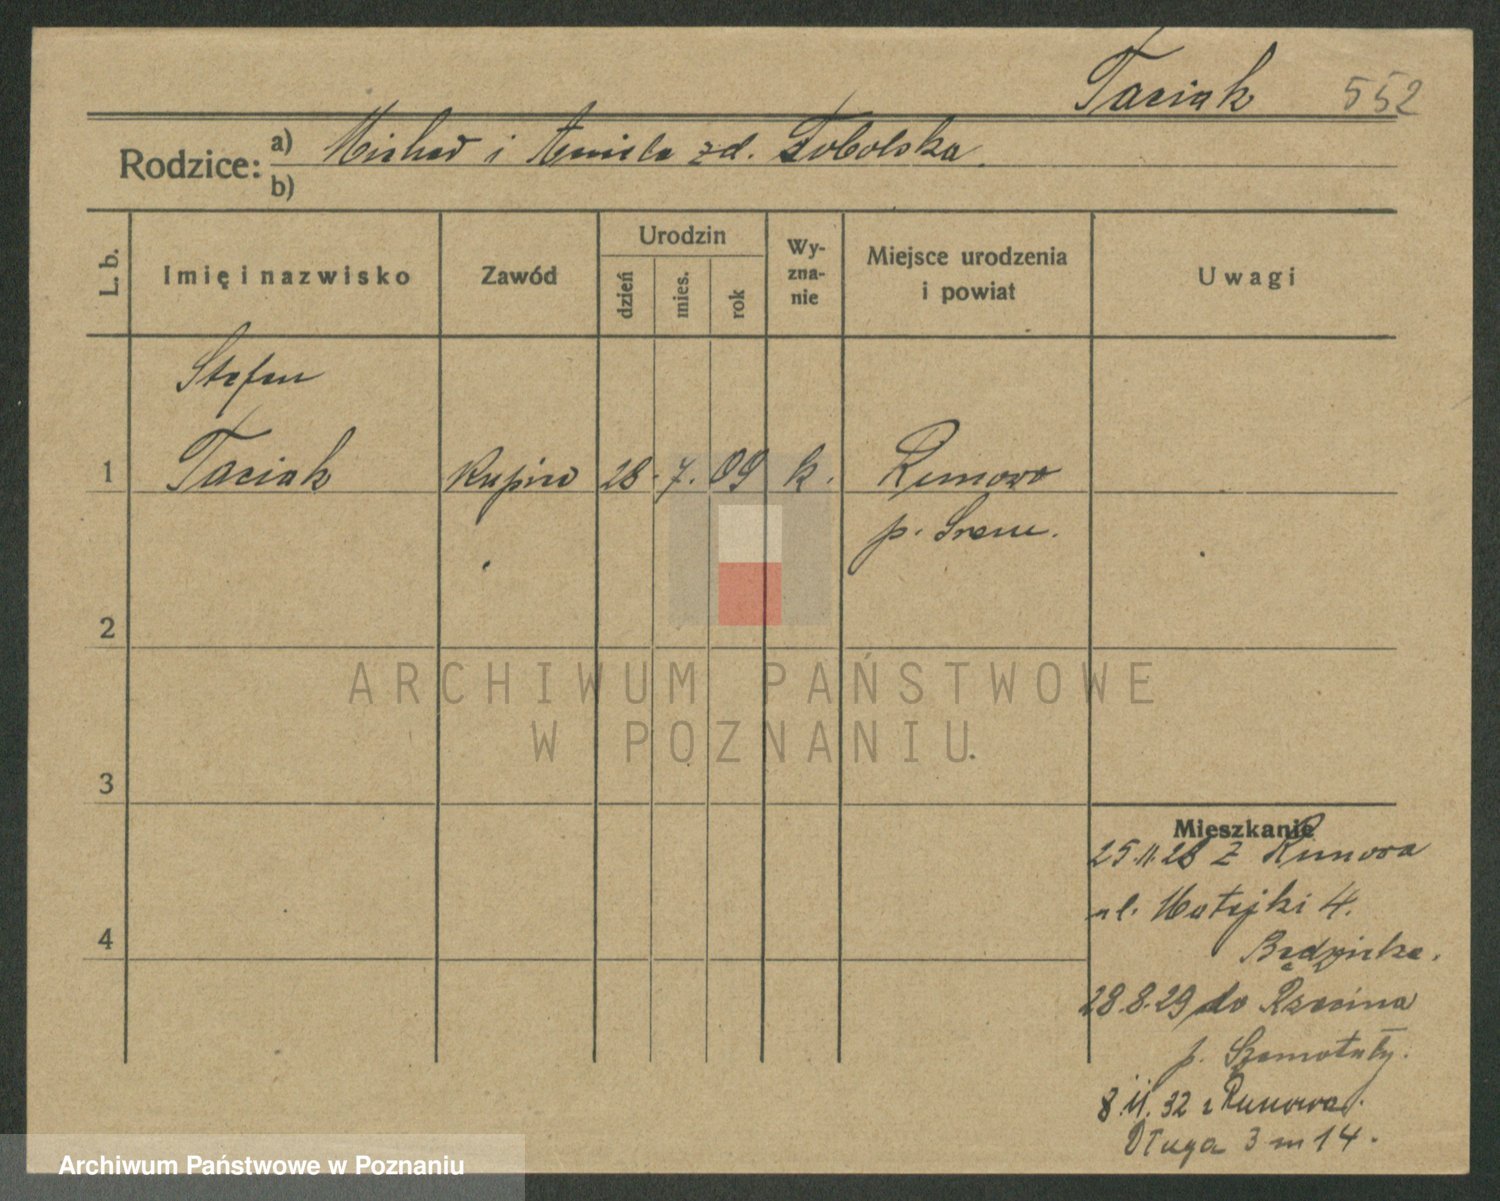 Taciak 552
Rodzice: a) Michał i Aniela zd. Tobolska.
b)
L. b. Imię i nazwisko Zawód Urodzin dzień mies. rok Wy-zna-nie Miejsce urodzenia i powiat Uwagi
Stefan
1 Taciak kupiec 28. 7. 09 k. Runowo
p. Śrem.
2
ARCHIWUM PAŃSTWOWE
W POZNANIU
3
Mieszkanie
25.11.28 z Runowa
ul. Matejki 4.
4
28.8.29 do Rzecina
p. Szamotuły.
8.11.32 z Runowa.
Długa 3 m 14.
Archiwum Państwowe w Poznaniu